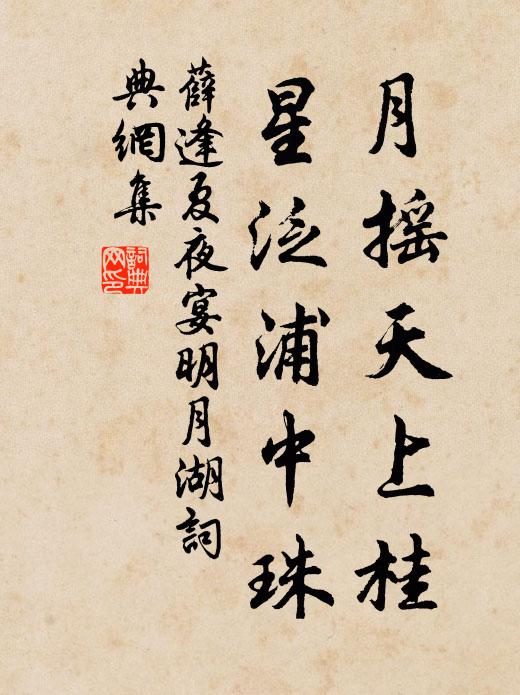 月摇天上桂
星泛浦中珠
薛逢夏夜宴明月湖詞
典網集
詞典
网印